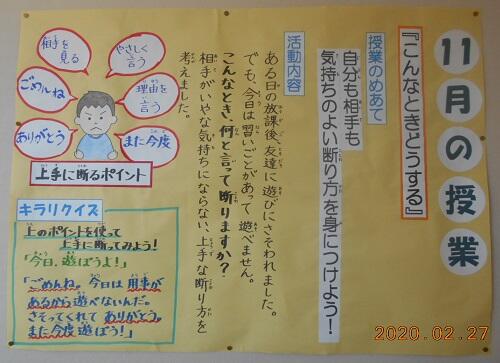 11月の授業
『こんなときどうする』
授業のめあて
自分も相手も
気持ちのよい断り方を身につけよう!
活動内容
ある日の放課後、友達に遊びにさそわれました。
でも、今日は習いごとがあって遊べません。
こんなとき、何と言って断りますか?
相手がいやな気持ちにならない、上手な断り方を
考えました。
相手を
見る
やさしく
言う
ごめんね
理由を
言う
ありがとう
また今度
上手に断るポイント
キラリクイズ
上のポイントを使って
上手に断ってみよう!
「今日、遊ぼうよ!」
「ごめんね。今日は用事が
あるから遊べないんだ。
さそってくれてありがとう。
また今度遊ぼう!」
2020.02.27